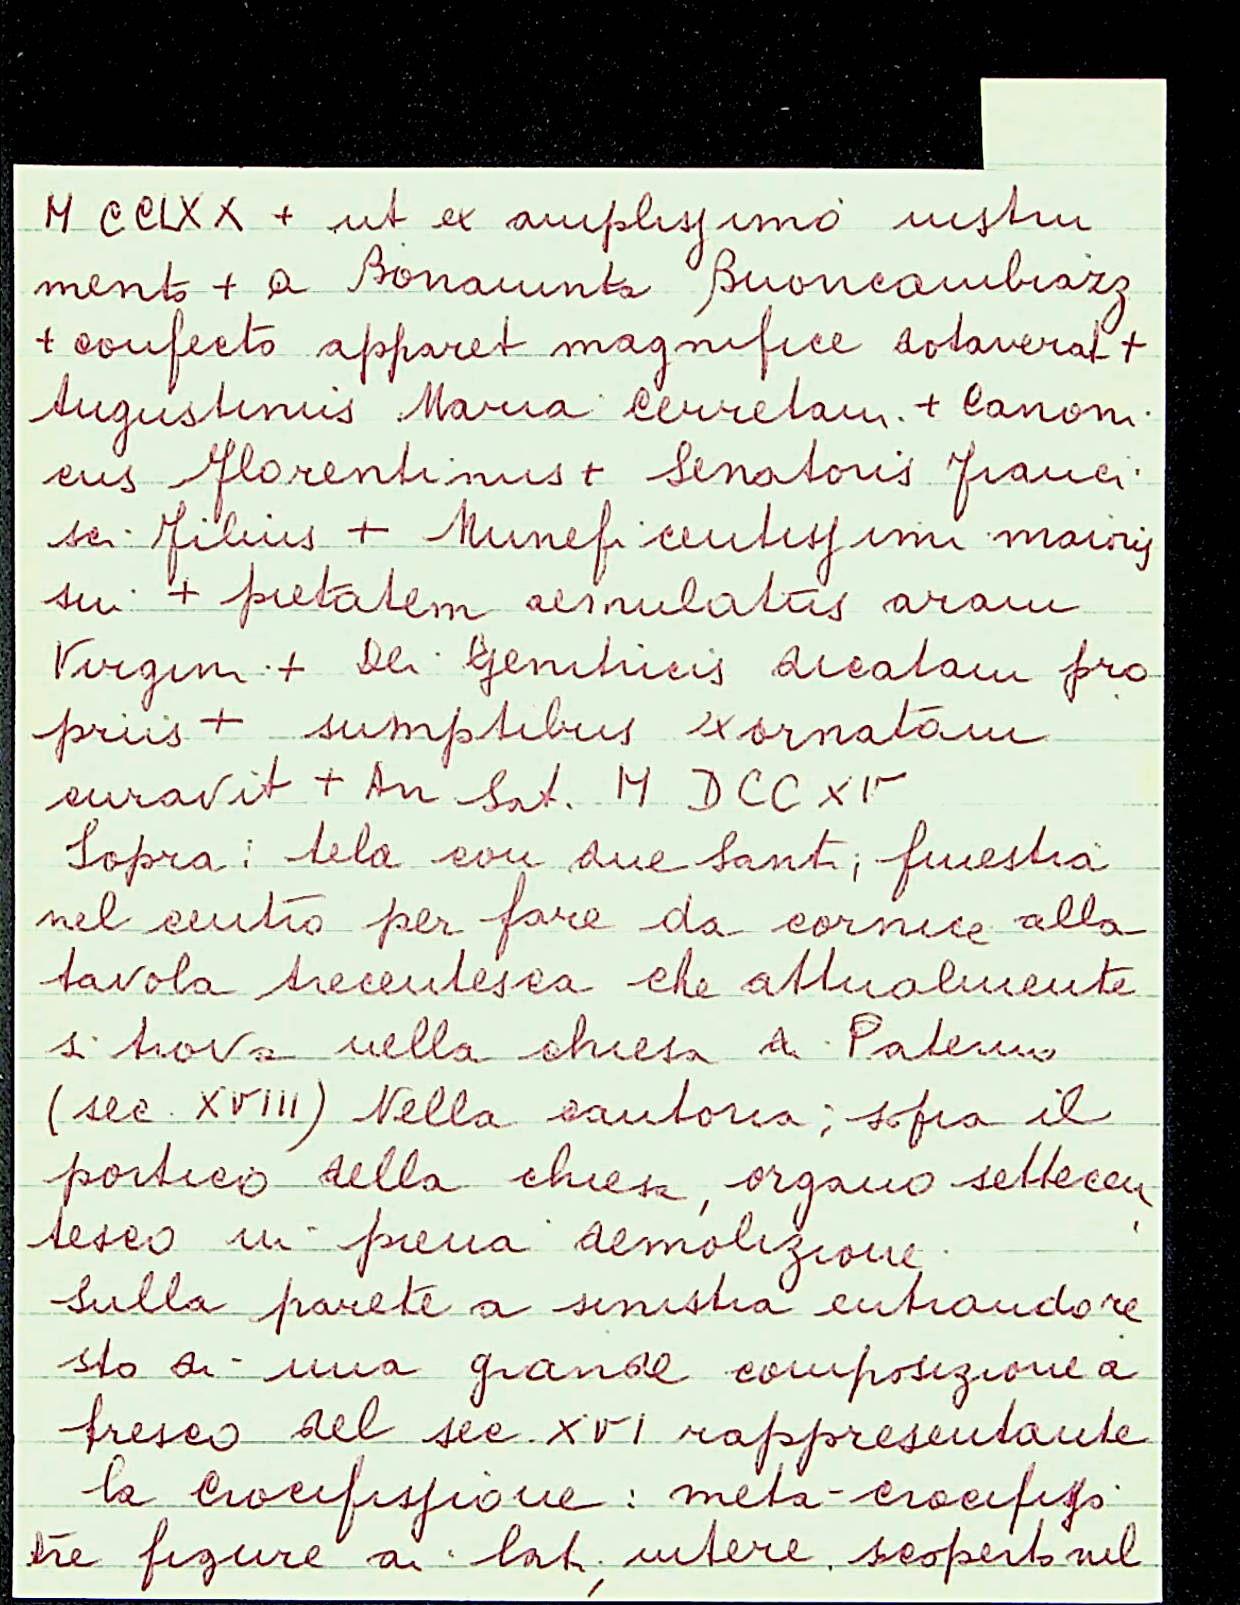 M CCLXX + ut ex amplissimo instru
mento + a Bonaiunta Buoncambiazz
+ confecto apparet magnifice dotaverat +
Augustinus Maria Cerretani + Canoni
cus Florentinus + Senatoris Franci
sci Filius + Muneficentissimi maioris
sui + pietatem aemulatus aram
Virgini + Dei Genitricis dicatam pro
priis + sumptibus exornatam
curavit + An Sat. M DCC XV
Sopra: tela con due Santi; finestra
nel centro per fare da cornice alla
tavola trecentesca che attualmente
si trova nella chiesa di Paterno
(sec. XVIII) Nella cantoria; sopra il
portico della chiesa, organo settecen
tesco in piena demolizione.
Sulla parete a sinistra entrando re
sto di una grande composizione a
fresco del sec. XVI rappresentante
la Crocifissione: metà crocifisso
tre figure ai lati, intere, scoperto nel